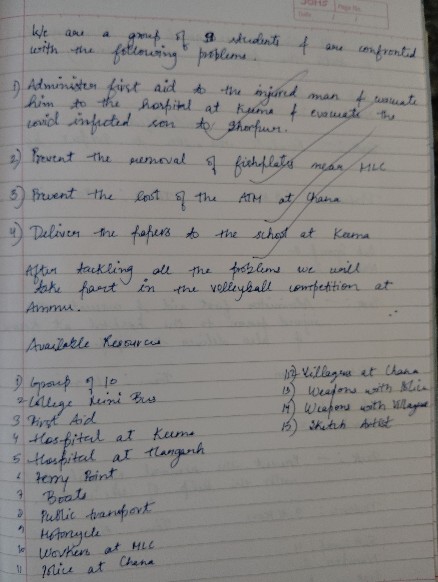 We are a group of students & are confronted
with the following problems.
1) Administer first aid to the injured man & evacuate
him to the hospital at Keema & evacuate the
covid infected son to Shorpur.
2) Prevent the removal of fishplates near MLC
3) Prevent the loot of the ATM at Chana
4) Deliver the papers to the school at Keema
After tackling all the problems we will
take part in the volleyball competition at
Ammu.
Available Resources
1) Group of 10
2 College Mini Bus
3 First Aid
4 Hospital at Keema
5 Hospital at
6 Ferry Point
7 Boats
8 Public transport
9 Motorcycle
10 Workers at MLC
11 Police at Chana
12) Villagers at Chana
13) Weapons with Police
14) Weapons with Villagers
15) Sketch Artist